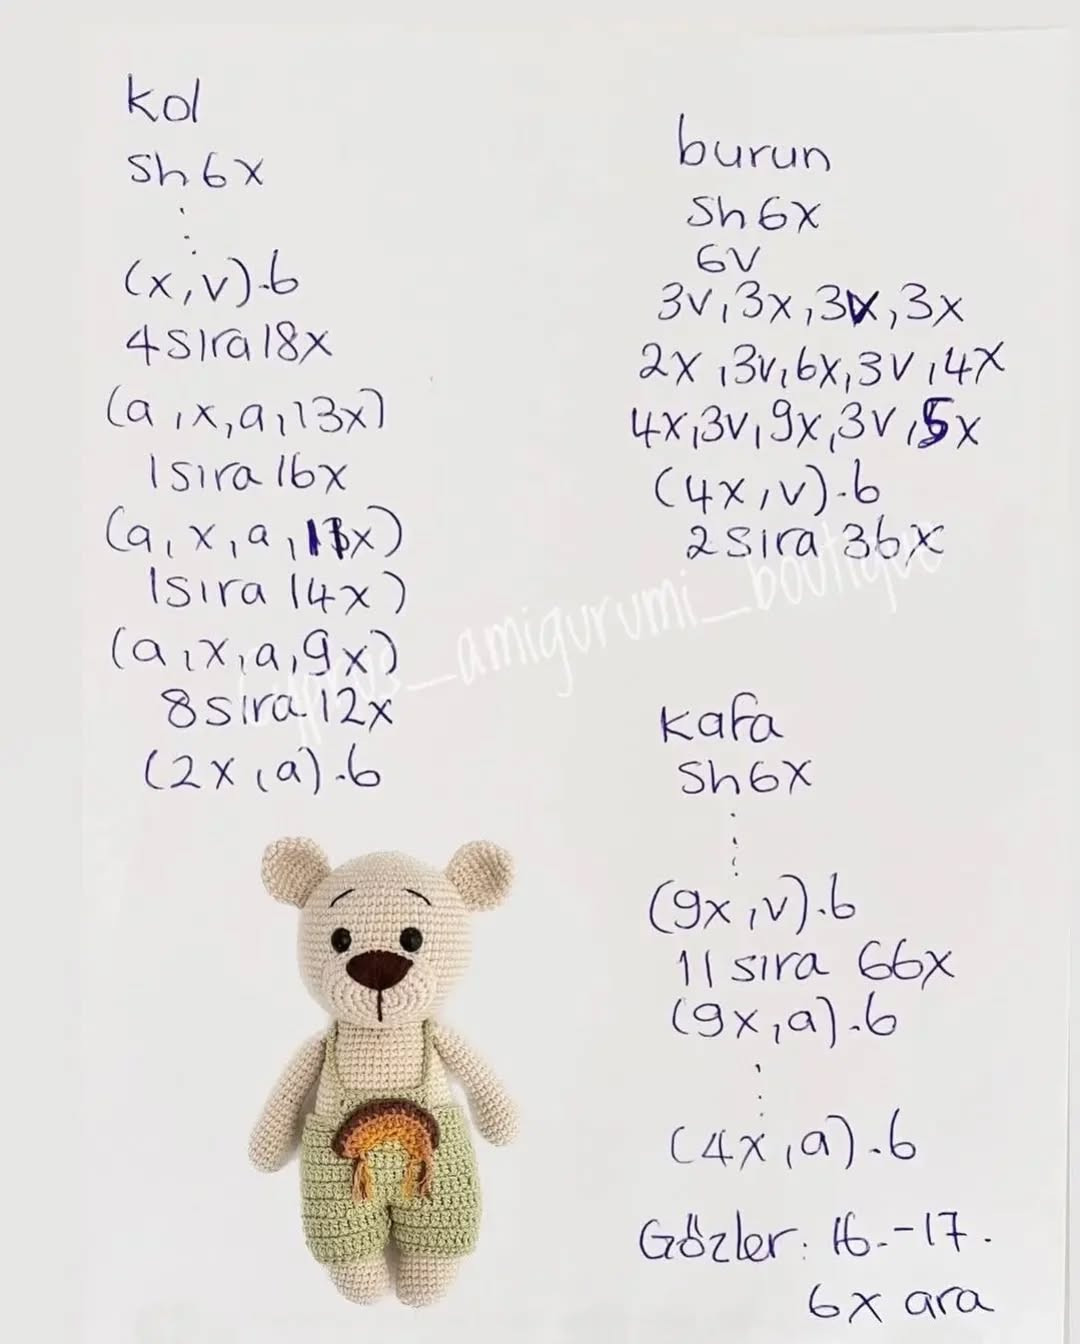 kol
Sh 6x
(x,v).6
4 sıra 18x
(a,x,a,13x)
1 sıra 16x
(a,x,a,11x)
1 sıra 14x)
(a,x,a,9x)
8 sıra 12x
(2x,a).6
burun
Sh 6x
6v
3v,3x,3v,3x
2x,3v,6x,3v,4x
4x,3v,9x,3v,5x
(4x,v).6
2 sıra 36x
amigurumi_boutique
kafa
Sh 6x
(9x,v).6
11 sıra 66x
(9x,a).6
(4x,a).6
Gözler: 16.-17.
6x ara